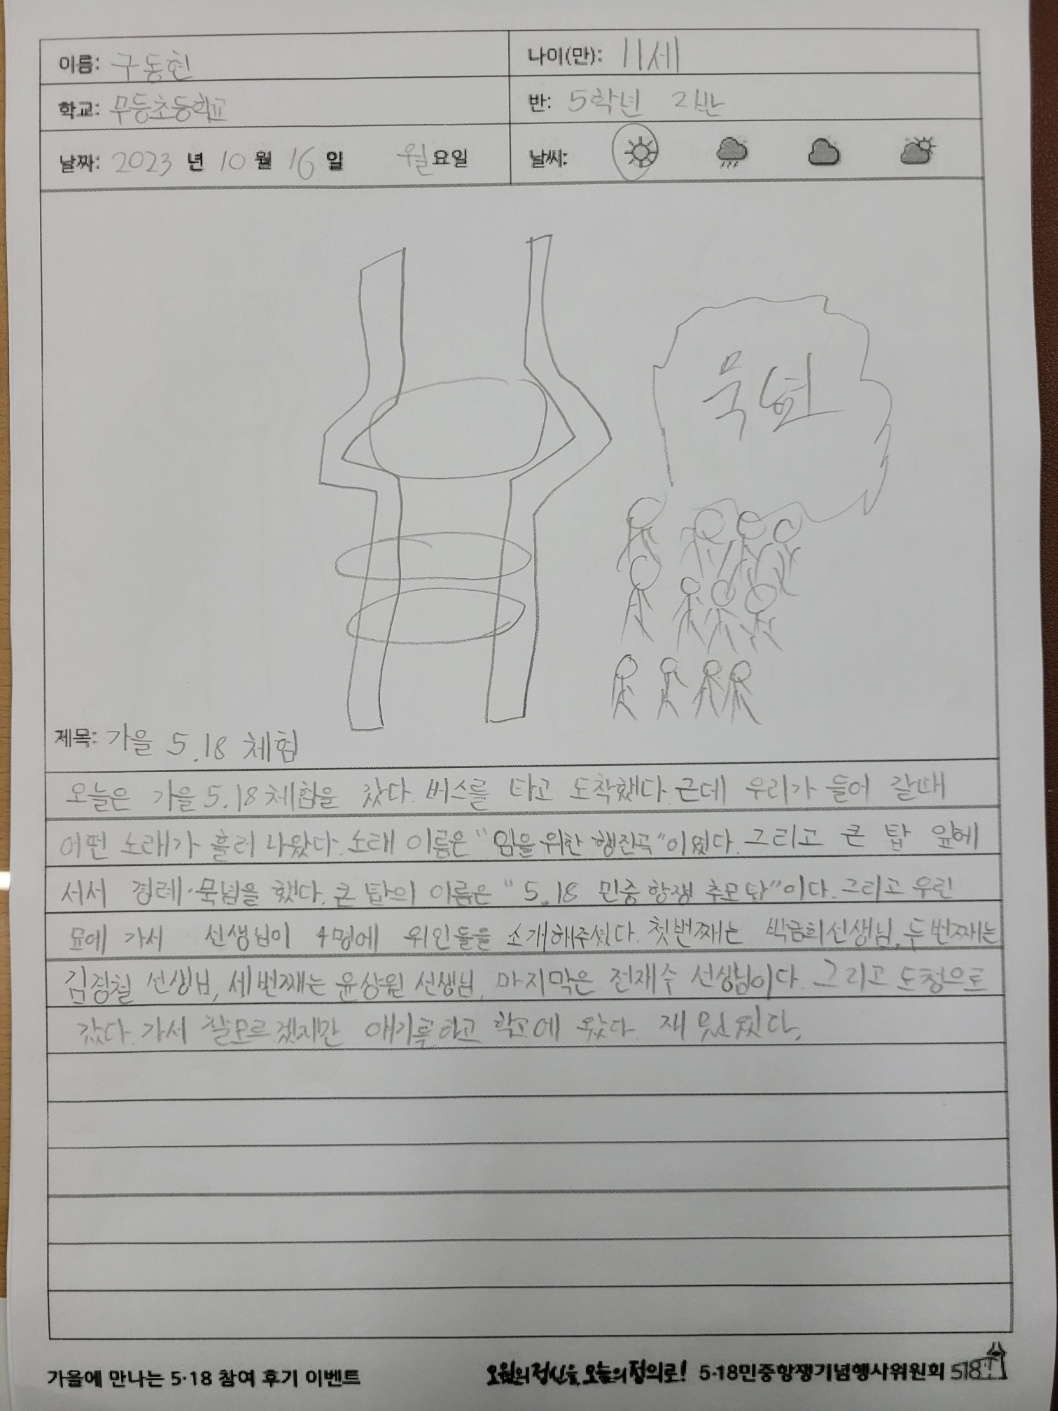 이름: 구동현
나이(만): 11세
학교: 무등초등학교
반: 5학년 2반
날짜: 2023 년 10 월 16 일 월요일
날씨:
묵념
제목: 가을 5.18 체험
오늘은 가을 5.18 체험을 갔다. 버스를 타고 도착했다. 근데 우리가 들어 갈때
어떤 노래가 흘러 나왔다. 노래 이름은 "임을 위한 행진곡"이였다. 그리고 큰 탑 앞에
서서 경례·묵념을 했다. 큰 탑의 이름은 "5.18 민중 항쟁 추모탑"이다. 그리고 우린
묘에 가서 선생님이 4명에 위인들을 소개해주셨다. 첫번째는 박금희선생님, 두번째는
김경철 선생님, 세번째는 윤상원 선생님, 마지막은 전재수 선생님이다. 그리고 도청으로
갔다. 가서 잘모르겠지만 얘기를 하고 학교에 왔다. 재밌었다.
가을에 만나는 5·18 참여 후기 이벤트
오월의 정신을 오늘의 정의로! 5·18민중항쟁기념행사위원회 518